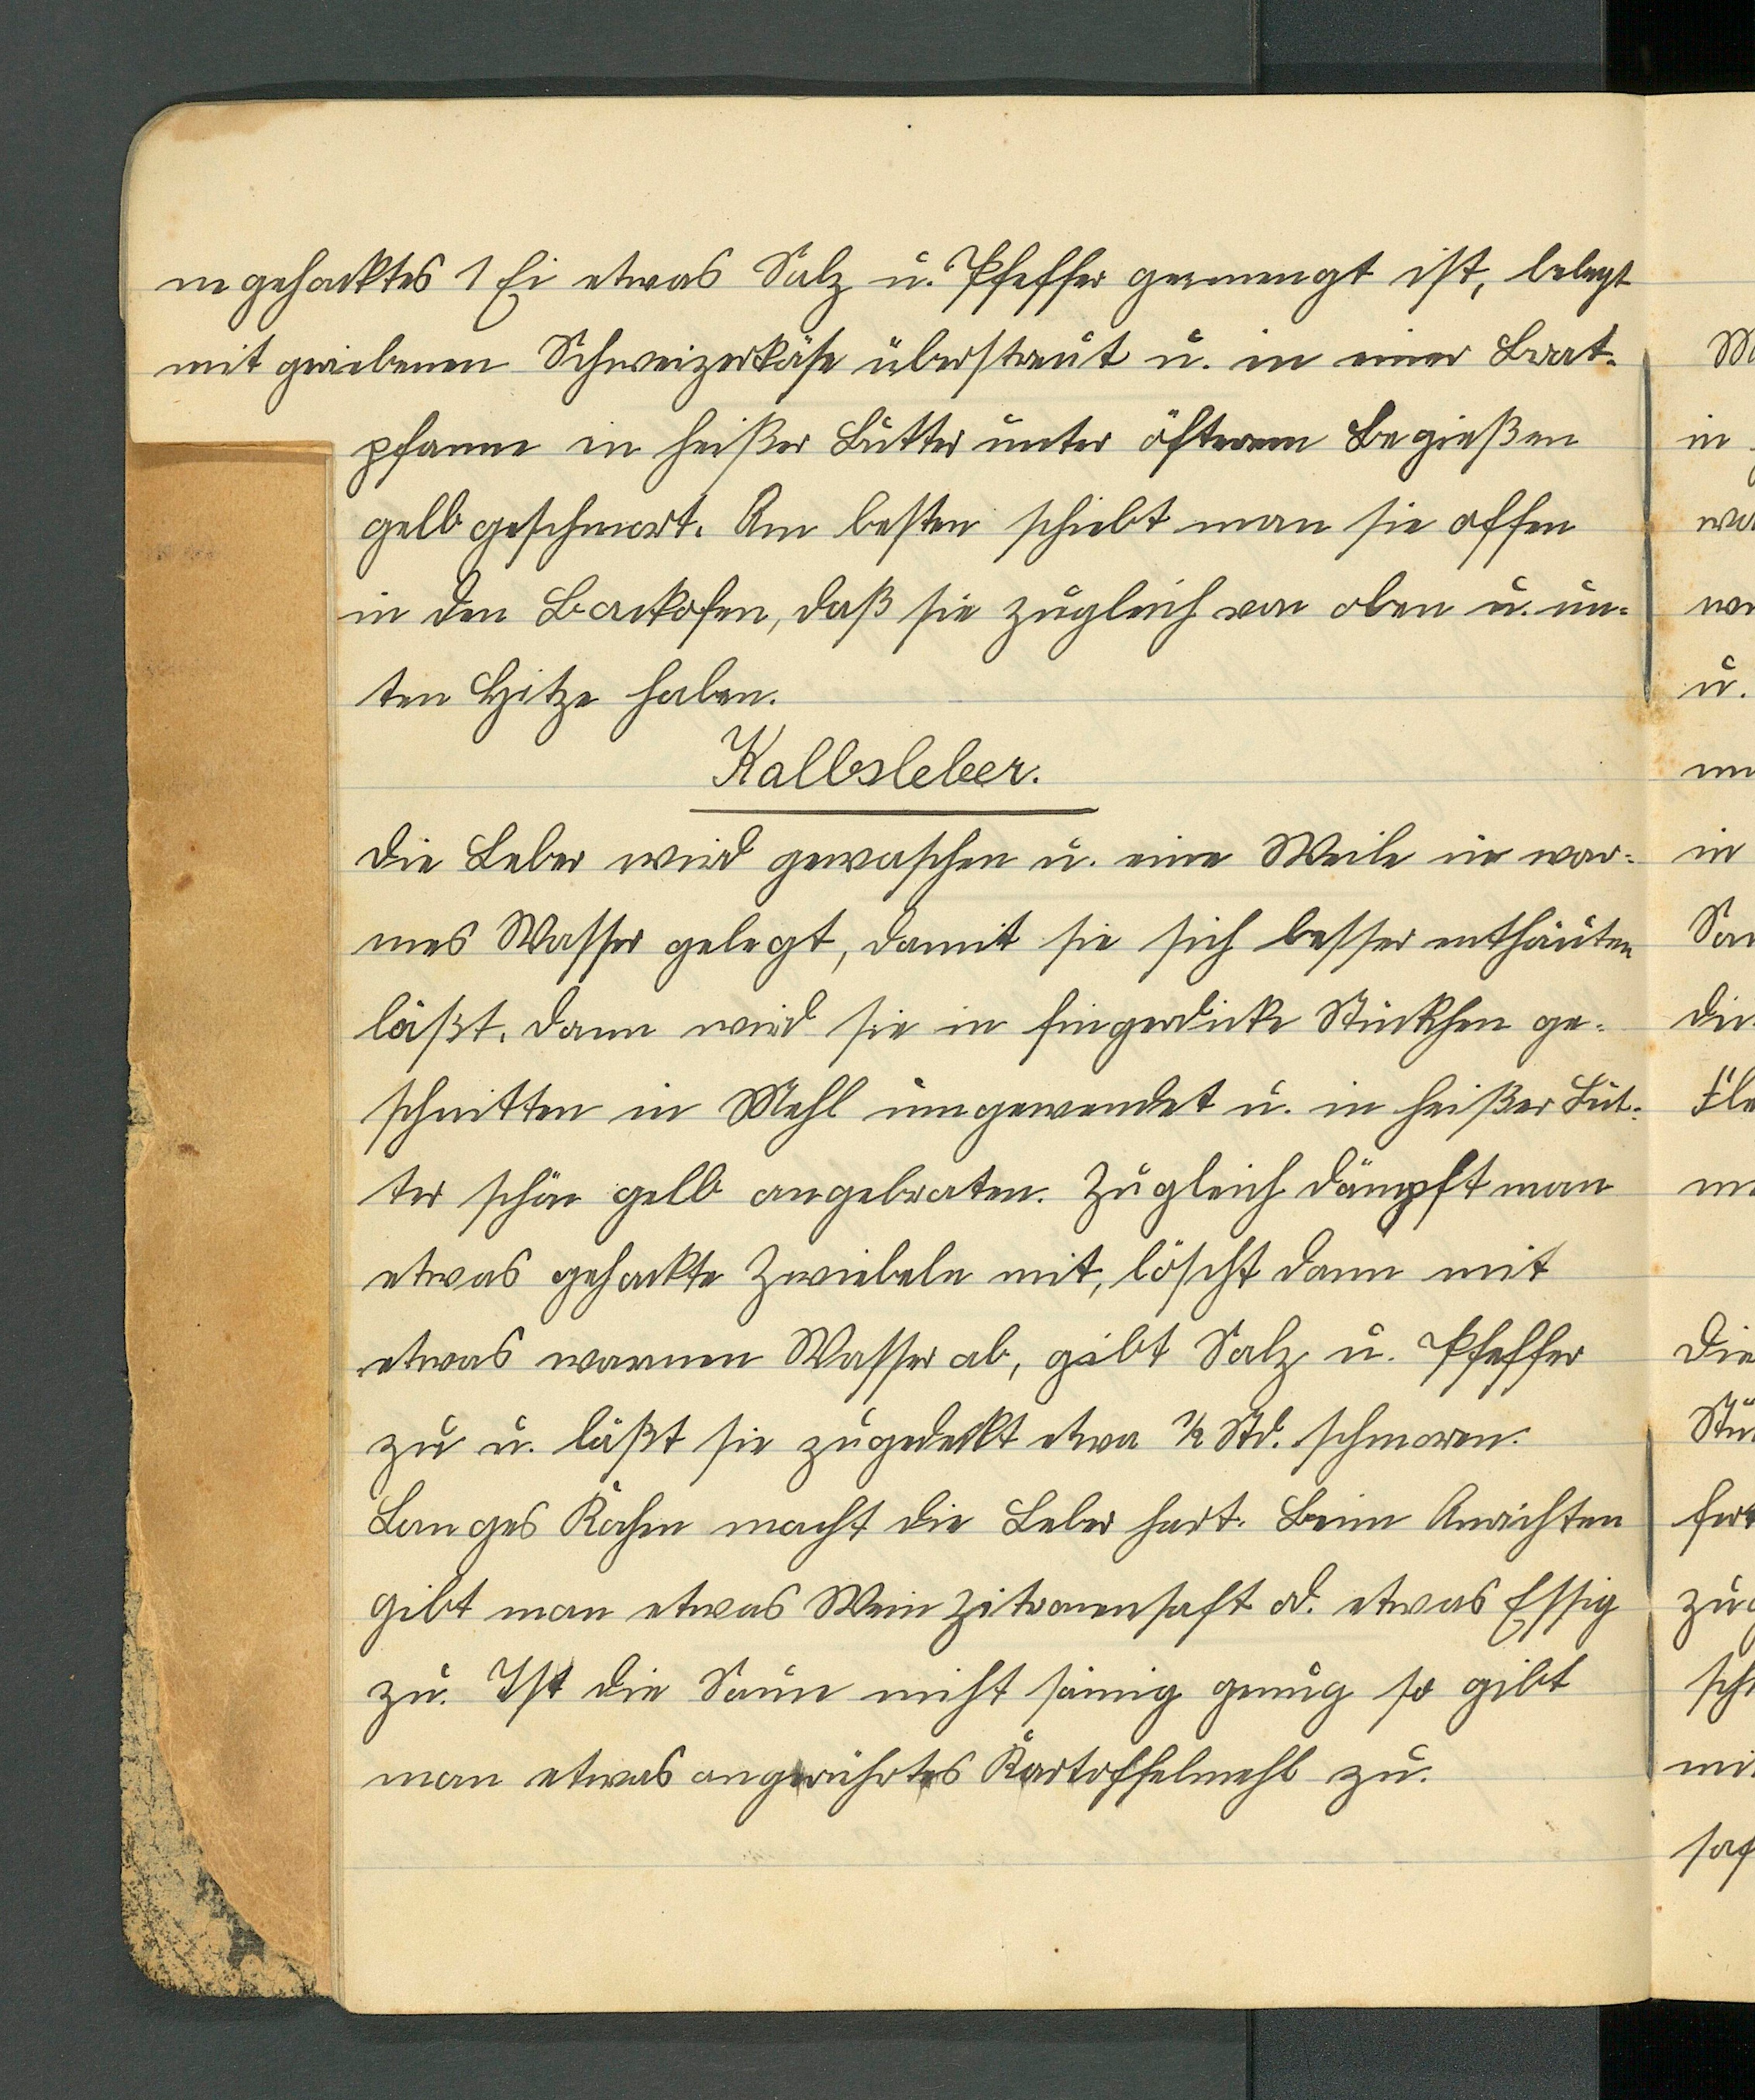 m gehacktes 1 Ei etwas Salz u. Pfeffer gemengt ist, belegt
mit geriebenen Schweizerkäse überstreut u. in einer Brat-
pfanne in heißer Butter unter öfterem Begießen
gelb geschmort. Am besten schiebt man sie offen
in den Backofen, daß sie zugleich von oben u. un-
ten Hitze haben.
Kalbsleber.
Die Leber wird gewaschen u. eine Weile in war-
mes Wasser gelegt, damit sie sich besser enthäuten
läßt. Dann wird sie in fingerdicke Stückchen ge-
schnitten in Mehl umgewendet u. in heißer But-
ter schön gelb angebraten. Zugleich dämpft man
etwas gehackte Zwiebeln mit, löscht dann mit
etwas warmen Wasser ab, gibt Salz u. Pfeffer
zu u. läßt sie zugedeckt etwa ½ Std. schmoren.
Langes macht die Leber hart. Beim Anrichten
gibt man etwas Wein Zitronensaft od. etwas Essig
zu. Ist die nicht sämig genug so gibt
man etwas angerührtes Kartoffelmehl zu.